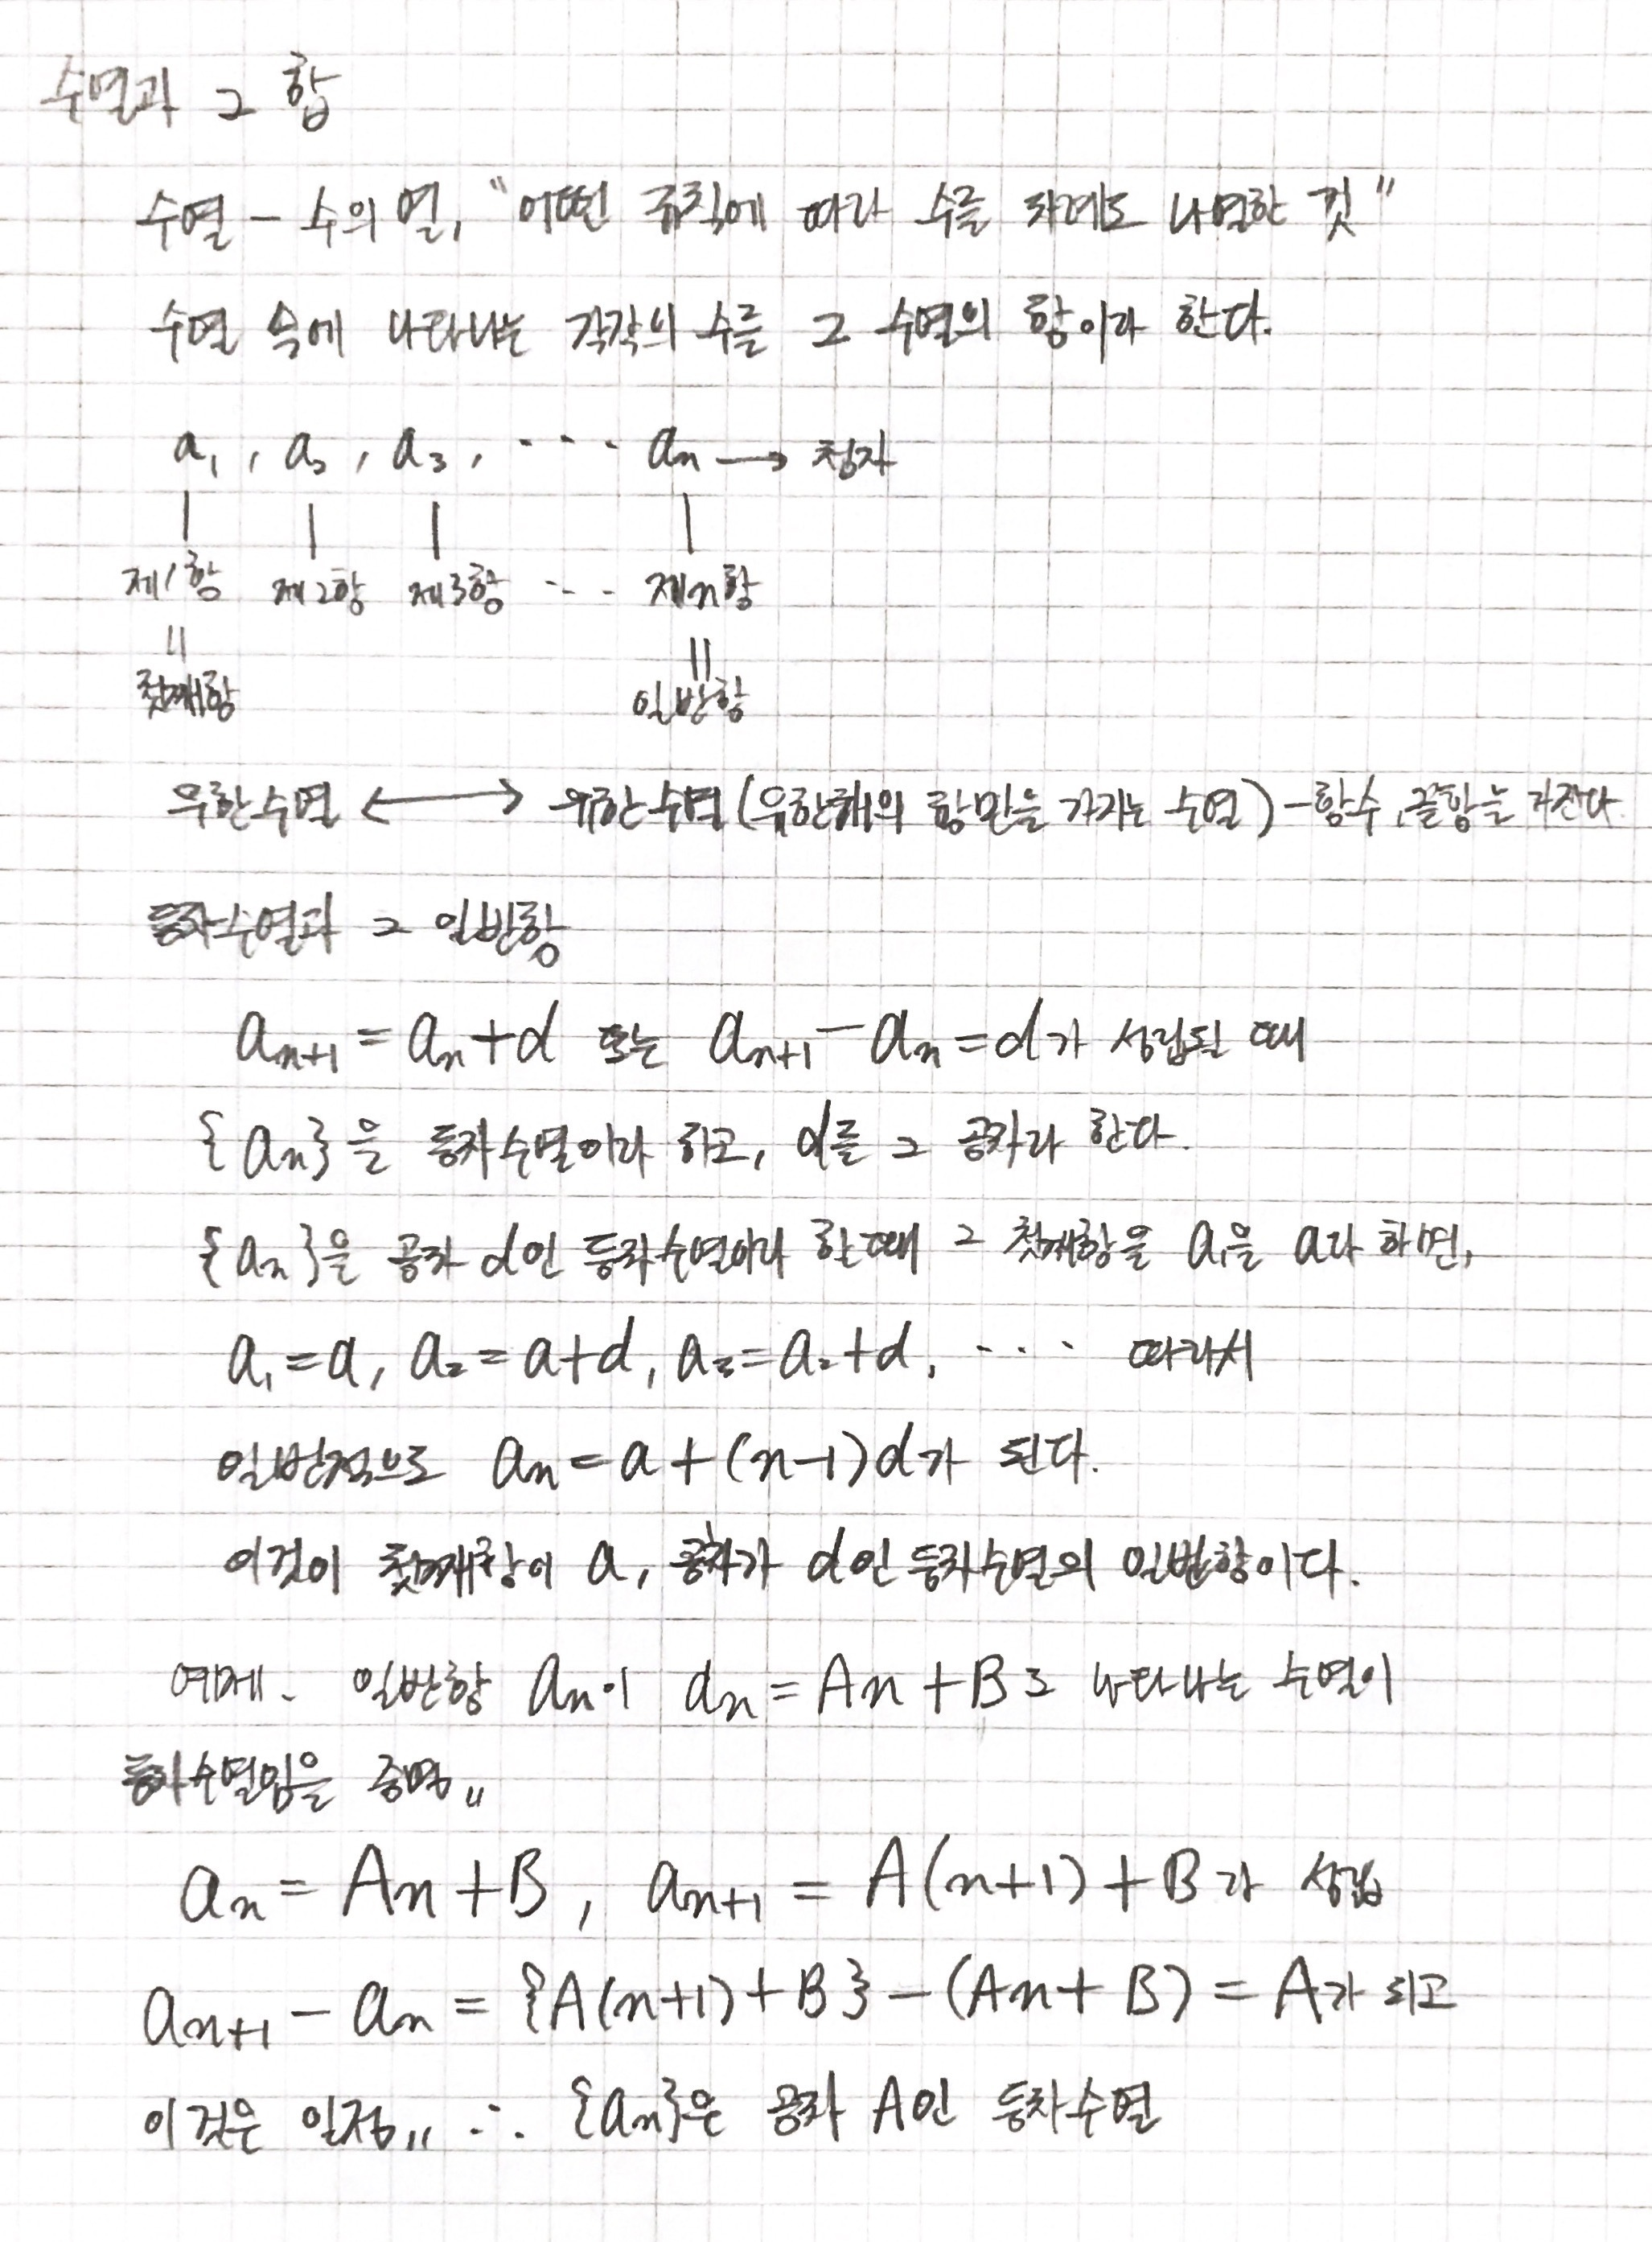 수열과 그 합
수열 - 수의 열, "어떤 규칙에 따라 수를 차례로 나열한 것"
수열 속에 나타나는 각각의 수를 그 수열의 항이라 한다.
a₁, a₂, a₃, ··· aₙ → 첨자
제1항 제2항 제3항 ··· 제n항
|| ||
첫째항 일반항
무한수열 ↔ 유한수열 (유한개의 항만을 가지는 수열) - 항수, 끝항을 가진다.
등차수열과 그 일반항
aₙ₊₁ = aₙ + d 또는 aₙ₊₁ - aₙ = d가 성립될 때
{aₙ}을 등차수열이라 하고, d를 그 공차라 한다.
{aₙ}을 공차 d인 등차수열이라 할때 그 첫째항을 a₁을 a라 하면,
a₁ = a, a₂ = a+d, a₃ = a₂+d, ··· 따라서
일반적으로 aₙ = a + (n-1)d가 된다.
이것이 첫째항이 a, 공차가 d인 등차수열의 일반항이다.
예제. 일반항 aₙ이 aₙ = An + B로 나타나는 수열이
등차수열임을 증명〃
aₙ = An + B, aₙ₊₁ = A(n+1) + B가 성립
aₙ₊₁ - aₙ = {A(n+1) + B} - (An + B) = A가 되고
이것은 일정〃 ∴ {aₙ}은 공차 A인 등차수열